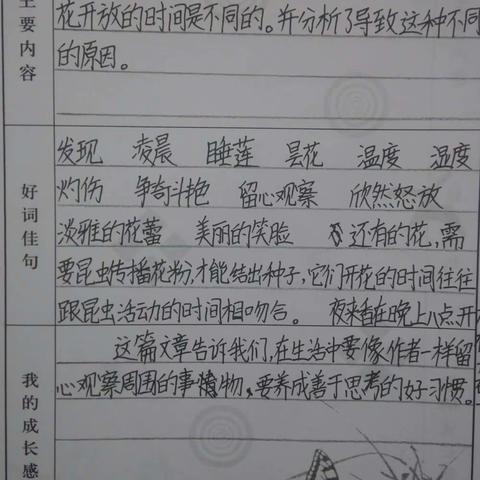 主要内容
花开放的时间是不同的。并分析了导致这种不同
的原因。
好词佳句
发现 凌晨 睡莲 昙花 温度 湿度
灼伤 争奇斗艳 留心观察 欣然怒放
淡雅的花蕾 美丽的笑脸 还有的花,需
要昆虫传播花粉,才能结出种子,它们开花的时间往往
跟昆虫活动的时间相吻合。 夜来香在晚上八点开
我的成长感
这篇文章告诉我们,在生活中要像作者一样留
心观察周围的事物,要养成善于思考的好习惯。